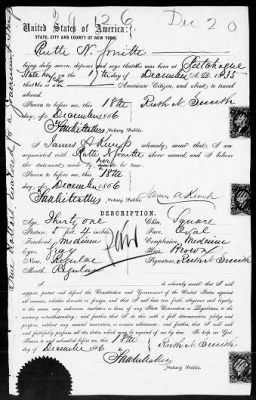 Dec 20
United States of America:
STATE, CITY AND COUNTY OF NEW YORK.
Ruth N. Smith
being duly sworn, deposes and says that was born at
State on the 17th day of December A.D. 1835
that is a American Citizen, and what to travel
abroad.
Sworn to before me, this 18th
day of December 1866
Ruth N. Smith
Notary Public.
I James A Kemp solemnly swear that I am
acquainted with Ruth N. Smith above named, and I believe
the statements made by her to be true.
Sworn to before me, this 18th
day of December 1866
James A Kemp
Notary Public.
DESCRIPTION.
Age, Thirty one
Chin, Square
Stature, 5 feet 4 inches
Face, Oval
Forehead, medium
Complexion, Medium
Eyes, Gray
Hair, Brown
Nose, Regular
Signature, Ruth N. Smith
Mouth, Regular
I do solemnly swear that I will
support, protect and defend the Constitution and Government of the United States against
all enemies, whether domestic or foreign, and that I will bear true faith, allegiance and loyalty
to the same any ordinance, resolution or law of any State Convention or Legislature, to the
contrary notwithstanding; and further, that I do this with a full determination, pledge, and
purpose, without any mental reservation, or evasion whatsoever, and further, that I will well
and faithfully perform all the duties which may be required of me by law. So help me God.
Sworn to and subscribed before me, this 18th
day of December 1866
Ruth N. Smith
Notary Public.